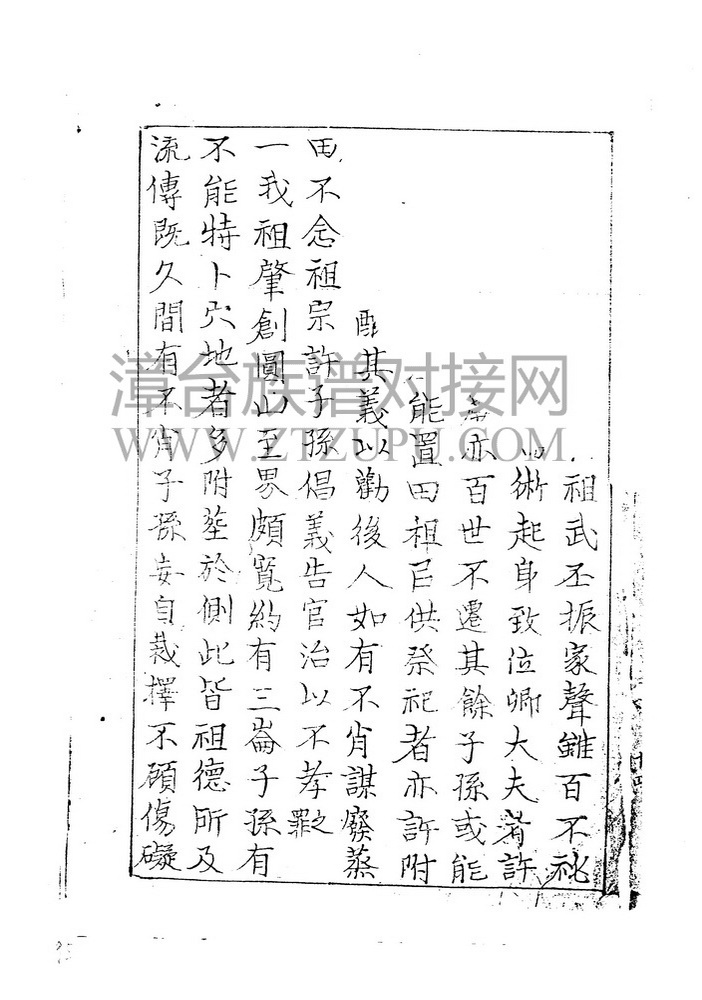 祖武丕振家聲雖百不祧
術起身致位卿大夫者許
亦百世不遷其餘子孫或能
能置田祖以供祭祀者亦許附
其義以勸後人如有不肖謀廢蒸
田不念祖宗許子孫倡義告官治以不孝之罪
一我祖肇創圓山至界頗寬約有三崙子孫有
不能特卜穴地者多附塟於側此皆祖德所及
流傳既久間有不肖子孫妄自裁擇不顧傷礙
漳台族谱对接网
WWW.ZTZUPU.COM